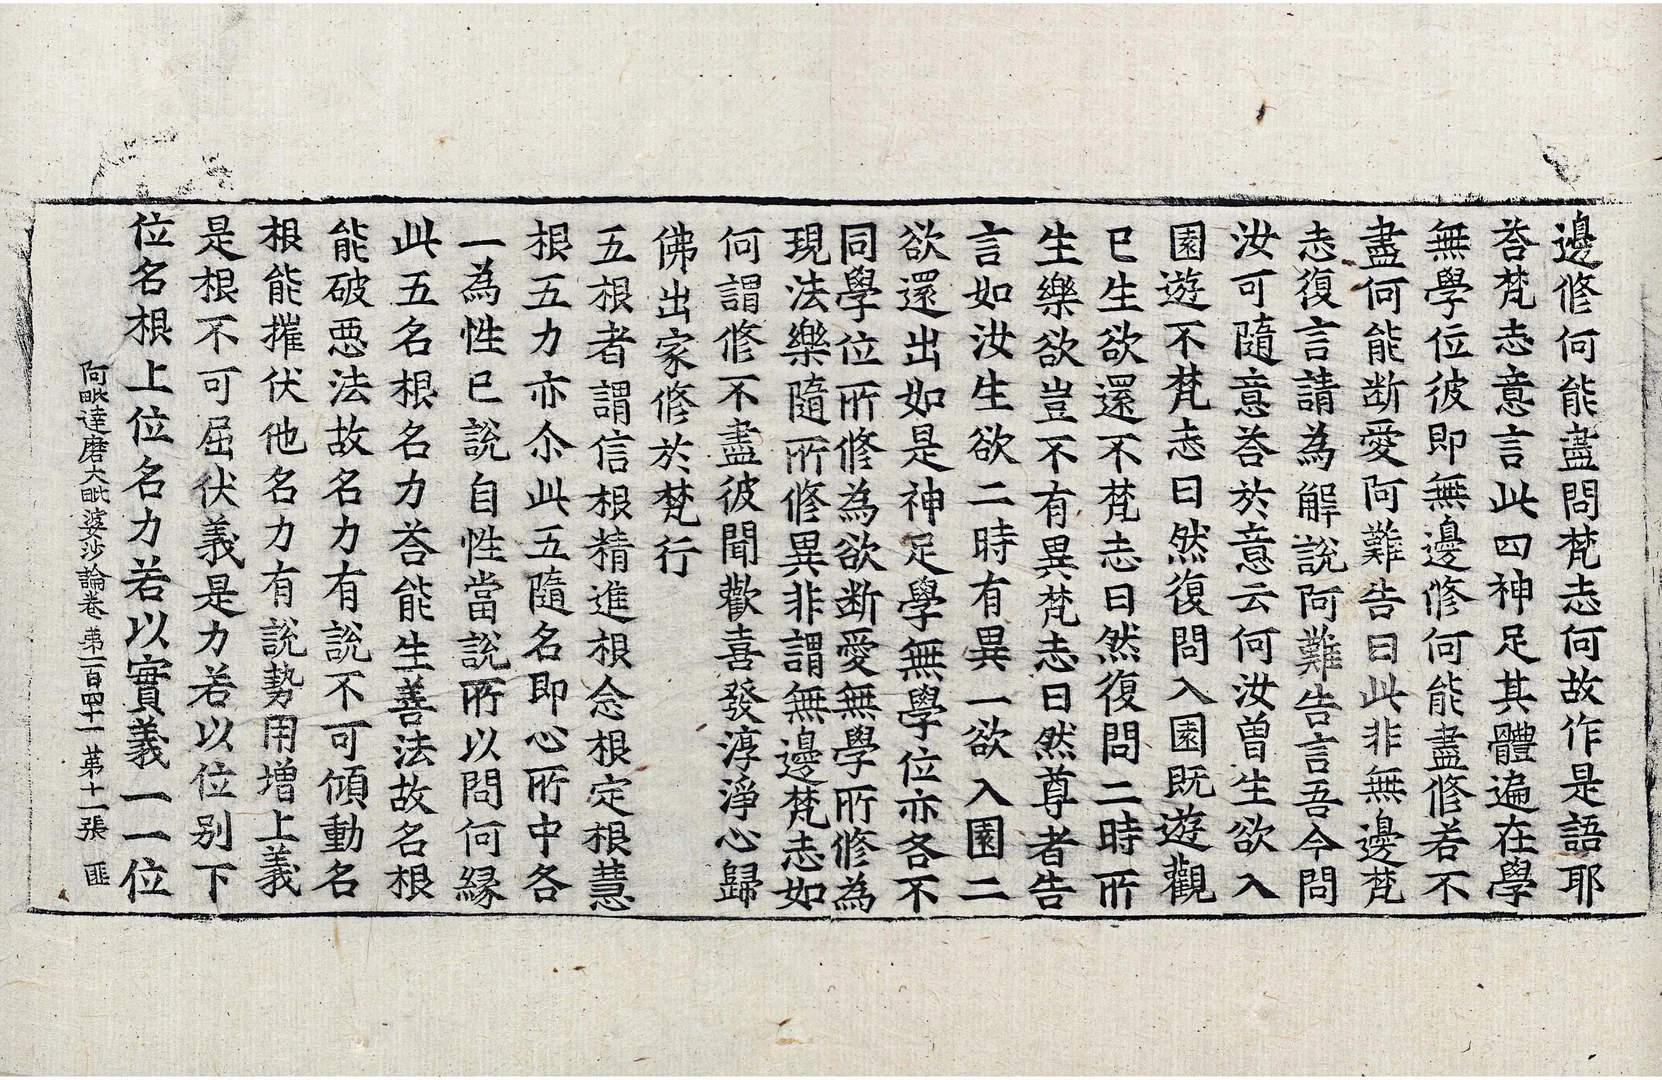 邊修何能盡問梵志何故作是語耶
荅梵志意言此四神足其體遍在學
無學位彼即無邊修何能盡修若不
盡何能断愛阿難告曰此非無邊梵
志復言請為解說阿難告言吾今問
汝可隨意荅於意云何汝曾生欲入
園遊不梵志曰然復問入園既遊觀
已生欲還不梵志曰然復問二時所
生樂欲豈不有異梵志曰然尊者告
言如汝生欲二時有異一欲入園二
欲還出如是神足學無學位亦各不
同學位所修為欲断愛無學所修為
現法樂隨所修異非謂無邊梵志如
何謂修不盡彼聞歡喜發淳淨心歸
佛出家修於梵行
五根者謂信根精進根念根定根慧
根五力亦尒此五隨名即心所中各
一為性已說自性當說所以問何縁
此五名根名力荅能生善法故名根
能破惡法故名力有說不可傾動名
根能摧伏他名力有說勢用增上義
是根不可屈伏義是力若以位别下
位名根上位名力若以實義一一位
阿毗達磨大毗婆沙論卷第一百四十一 第十一張 匪